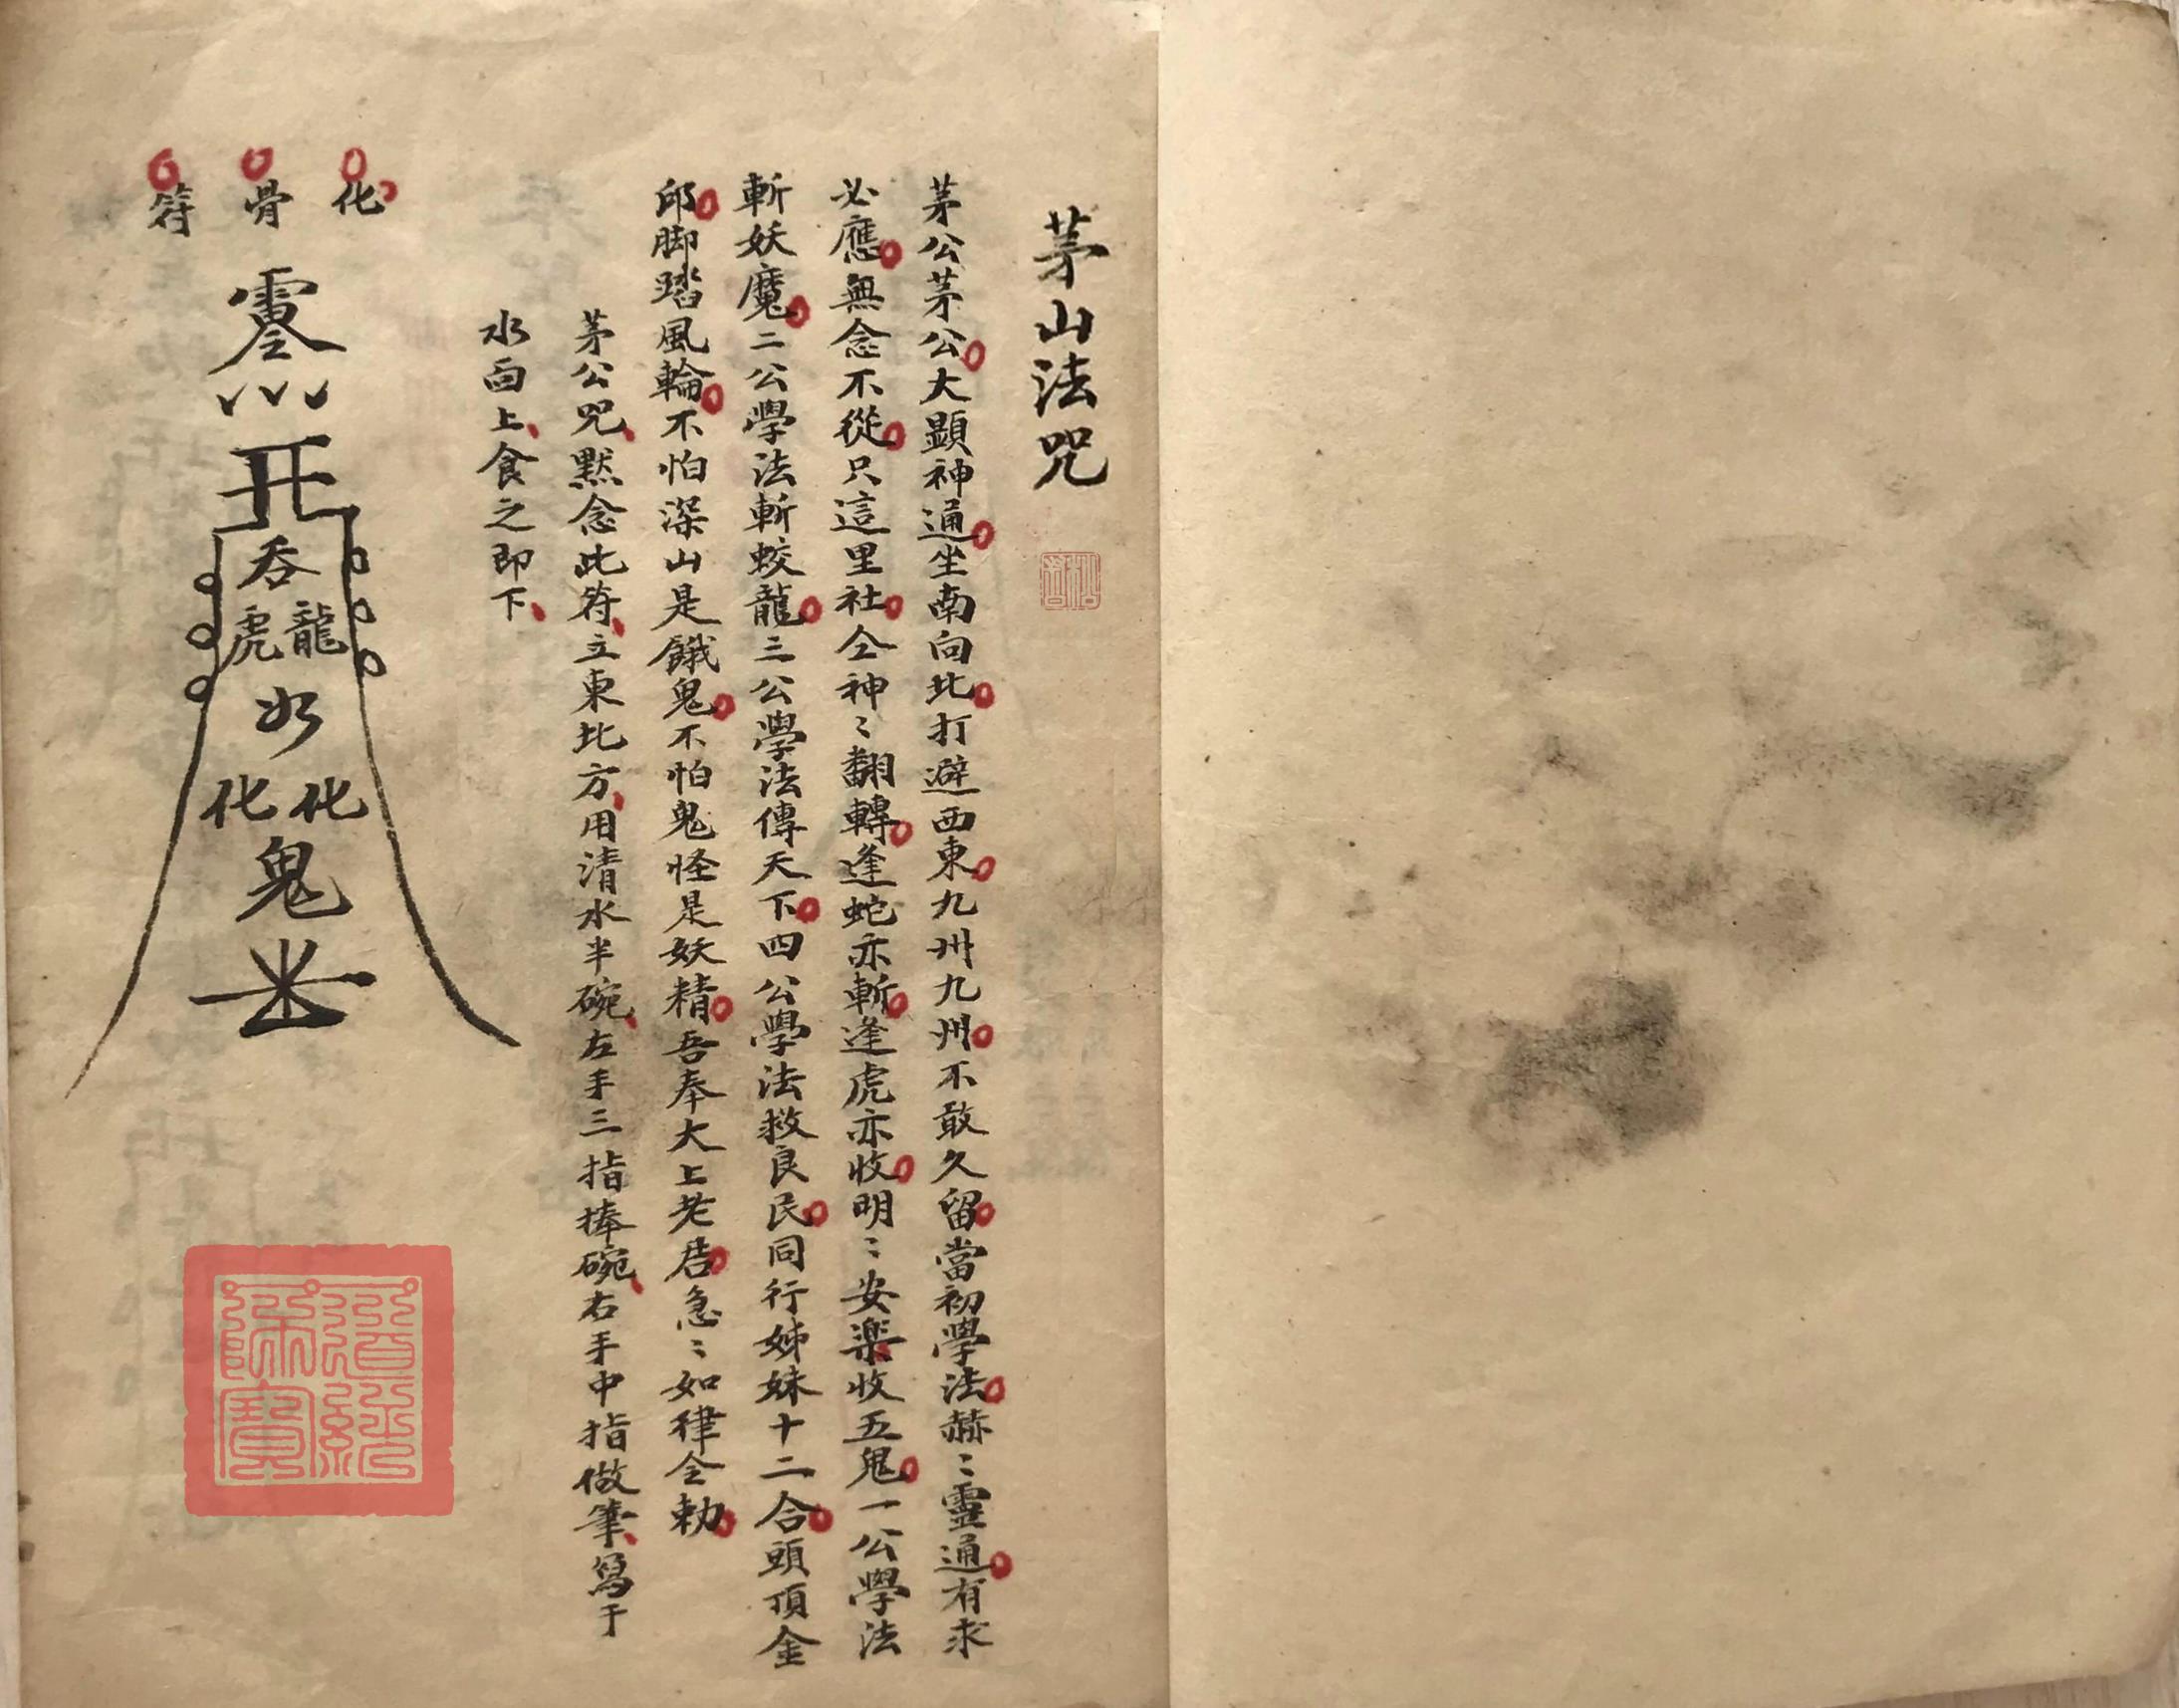 茅山法咒
茅公茅公大顯神通坐南向北打避西東九州九州不敢久留當初學法赫〻靈通有求
必應無念不從只這里社仝神〻翻轉逢蛇亦斬逢虎亦收明〻安楽收五鬼一公學法
斬妖魔二公學法斬蛟龍三公學法傳天下四公學法救良民同行姊妹十二合頭頂金
邱脚踏風輪不怕深山是餓鬼不怕鬼怪是妖精吾奉大上老君急〻如律令勅
茅公咒默念此符立東北方用清水半碗左手三指捧碗右手中指做筆寫于
水面上食之即下
化骨符
吞
龍虎
化化
鬼
道經師寶